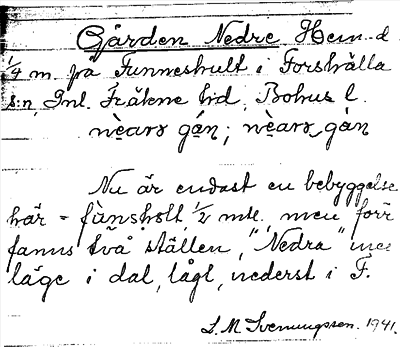 Gården Nedre Hem. d
1/4 m. på Funneshult i Forshälla
s:n, Inl. Fräkne hd, Bohus l.
nèaro gán; nèaro gàn
Nu är endast en bebyggelse
här = fùnsholt 1/2 mtl. men förr
fanns två ställen, "Nedra" med
läge i dal, lågt, nederst i F.
L. M. Svenungsson. 1941.